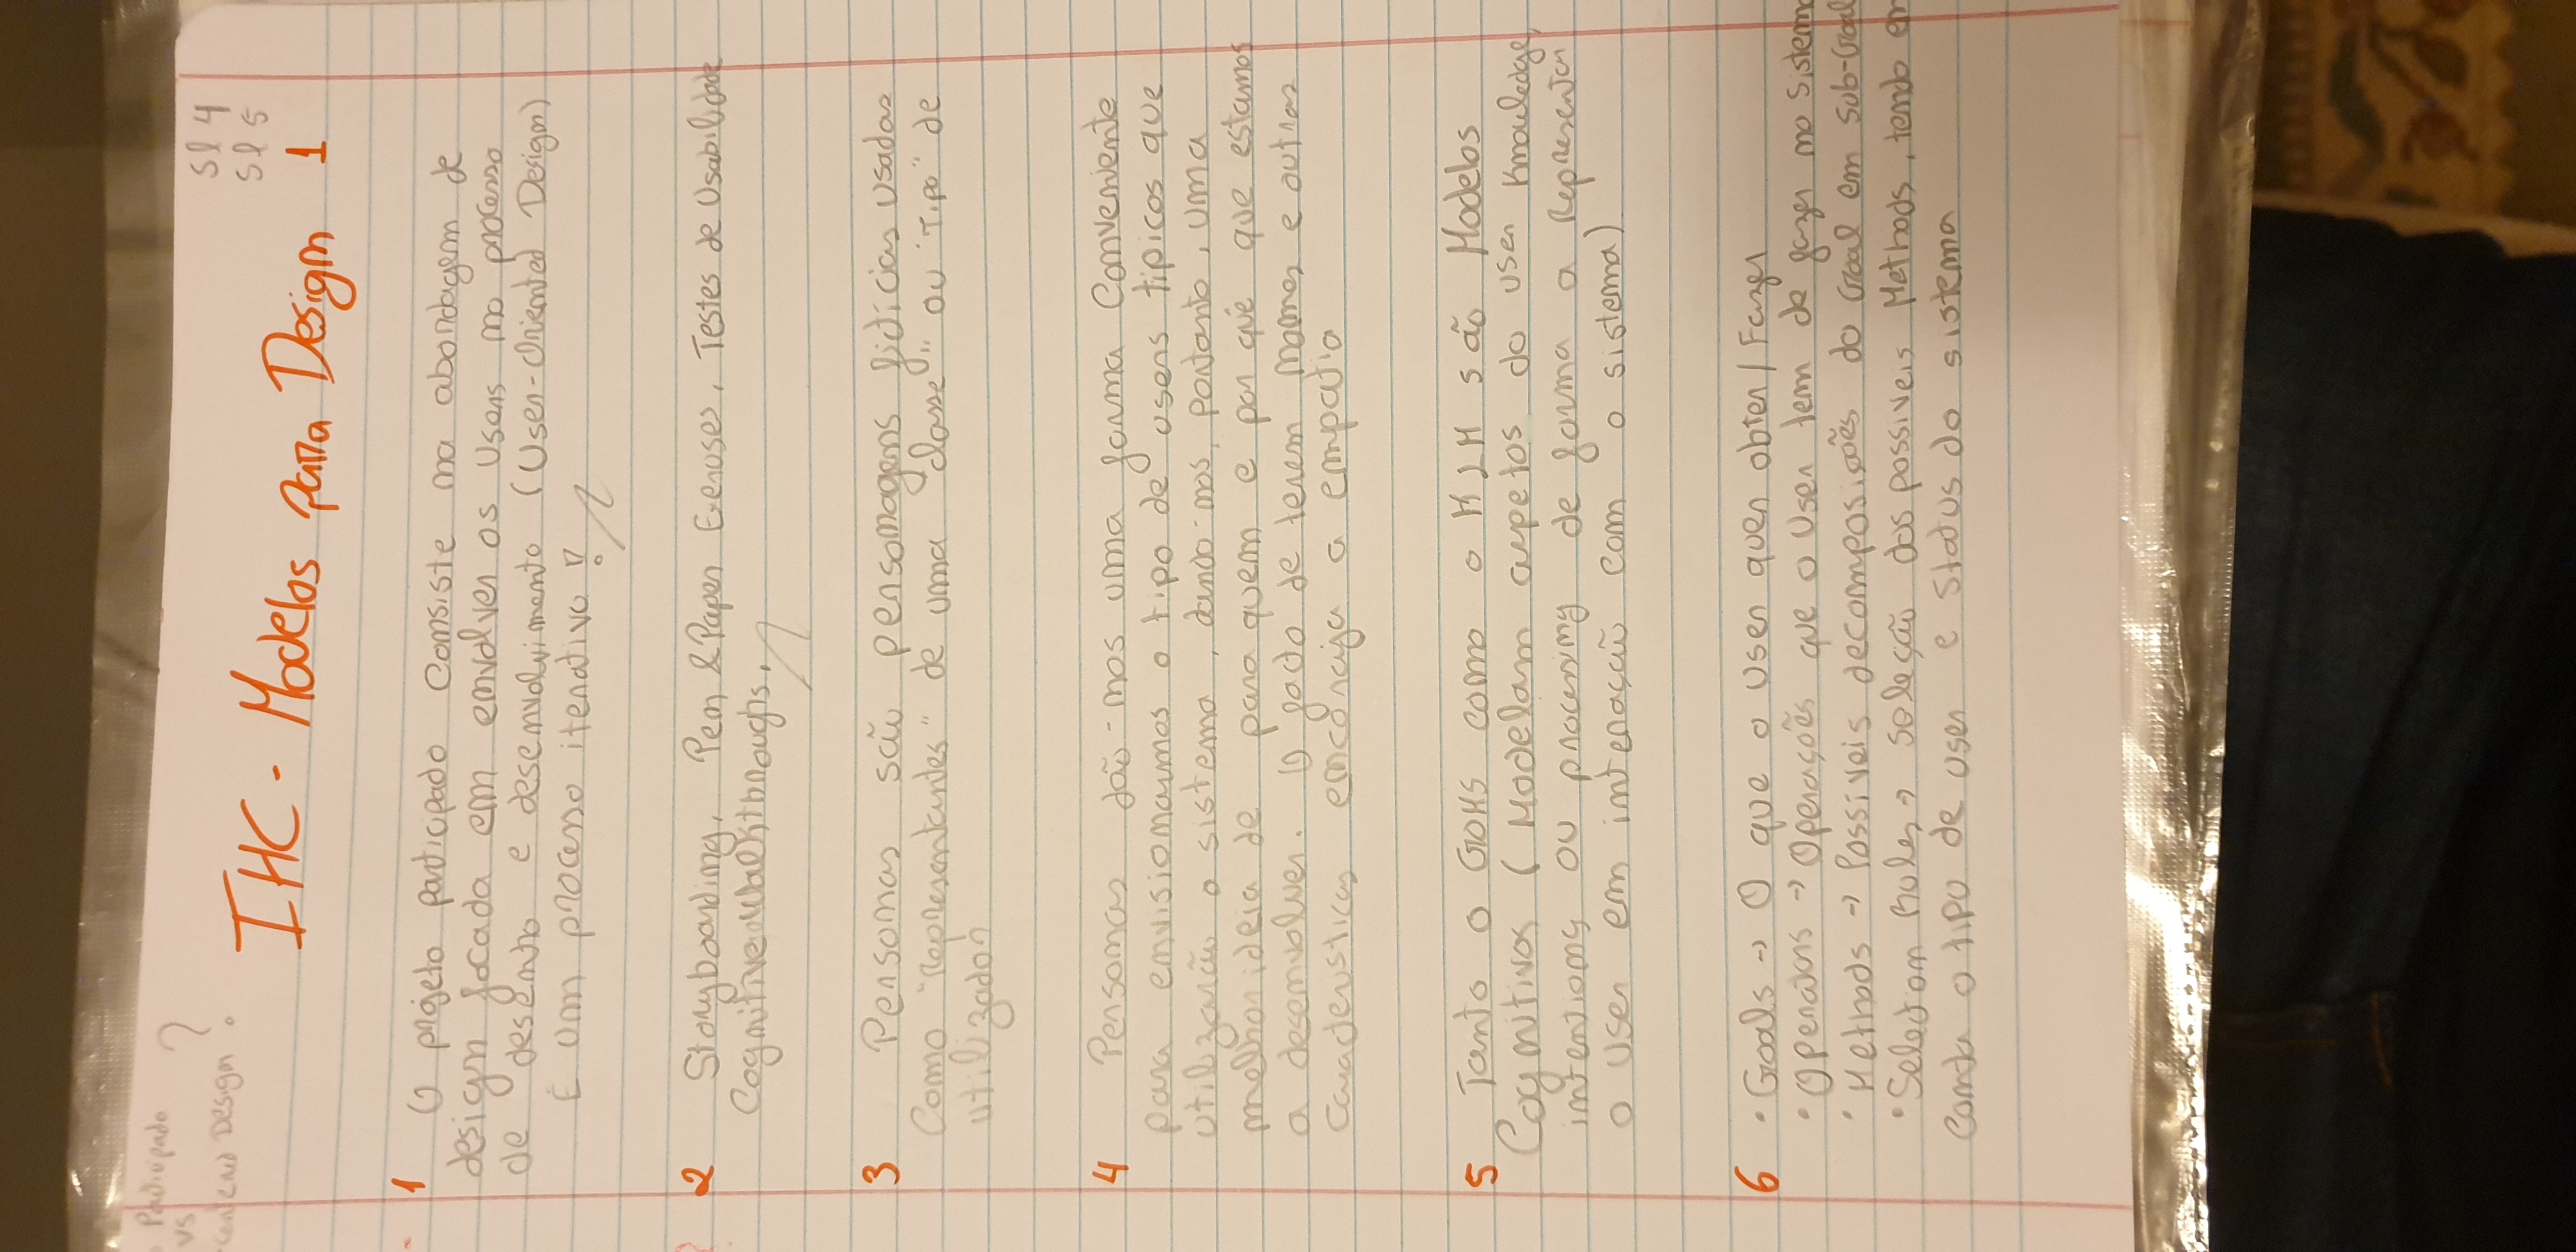 Participado
vs ?
centered Design
Sl 4
Sl 5
IHC - Modelos para Design 1
1 O projeto participado consiste na abordagem de
design focada em envolver os users no processo
de desenho e desenvolvimento (User-Oriented Design)
É um processo iterativo!!
2 Storyboarding, Pen & Paper Exercises, Testes de Usabilidade
Cognitive Walkthroughs.
3 Personas são personagens fictícias usadas
como "representantes" de uma "classe" ou "Tipo" de
utilizador
4 Personas dão-nos uma forma conveniente
para envisionarmos o tipo de users tipicos que
utilizarão o sistema, dando-nos, portanto, uma
melhor ideia de para quem e por quê que estamos
a desenvolver. O facto de terem nomes e outras
características encoraja a empatia
5 Tanto o GOMS como o KLM são Modelos
Cognitivos (Modelam aspetos do user Knowledge,
intentions ou processing de forma a Representar
o User em interação com o sistema)
6 • Goals → O que o User quer obter / Fazer
• Operators → Operações que o User tem de fazer no Sistema
• Methods → Possíveis decomposições do Goal em Sub-Goal
• Selection Rules → Seleção dos possiveis Methods, tendo em
conta o tipo de user e status do sistema